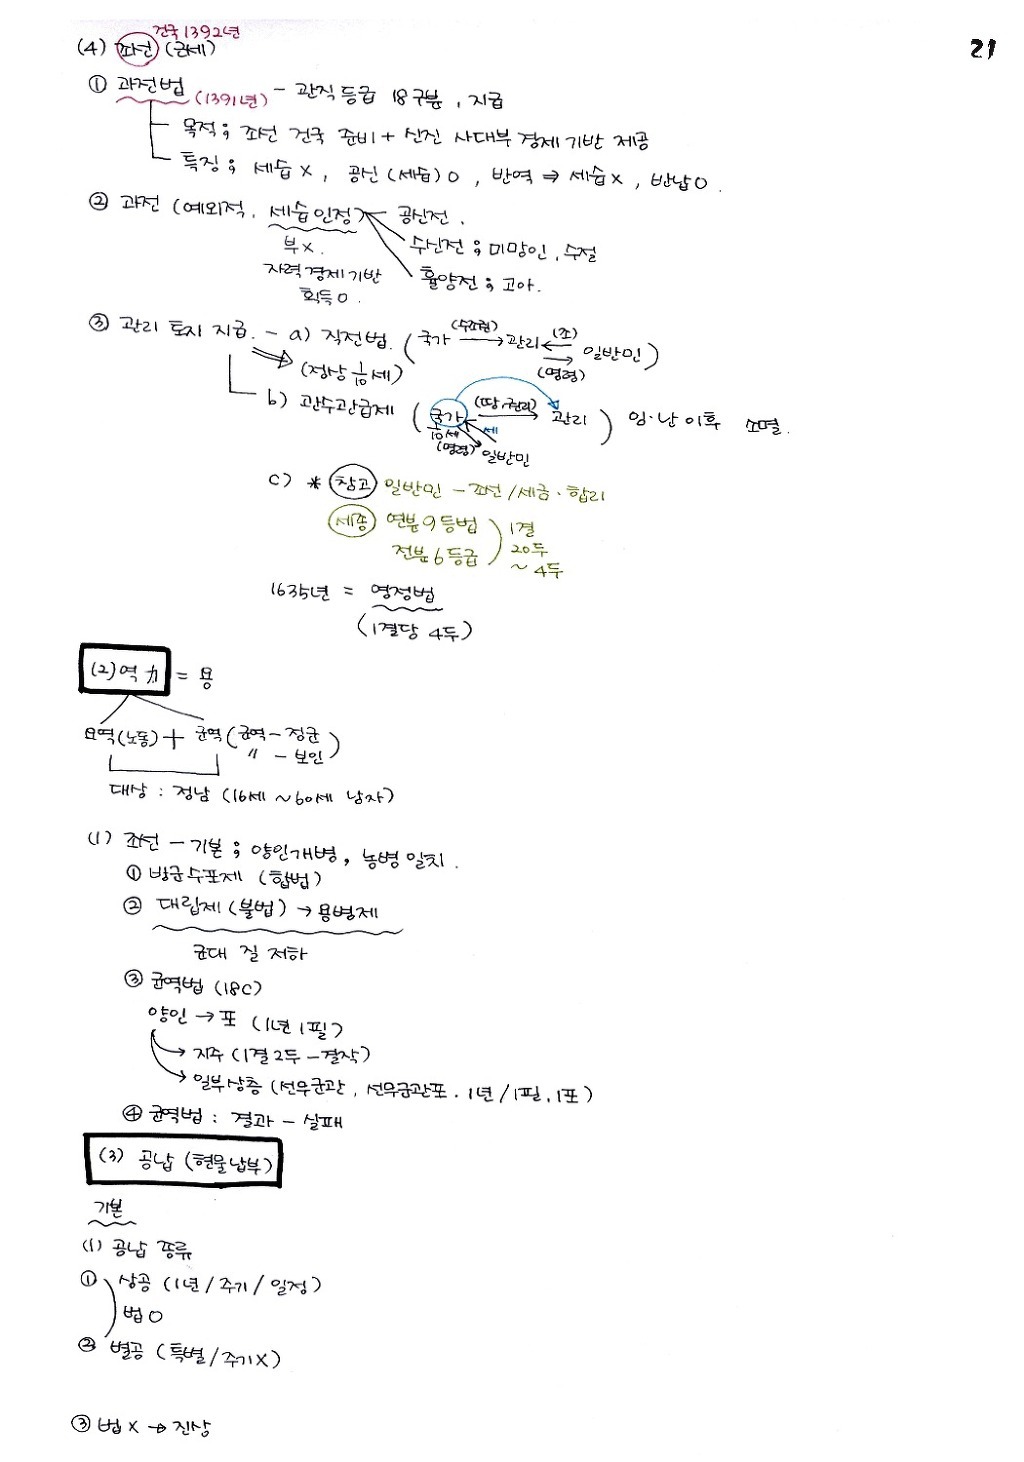 건국 1392년
21
(4) 조선 (전세)
① 과전법 (1391년) - 관직 등급 18구분, 지급
목적 ; 조선 건국 준비 + 신진 사대부 경제 기반 제공
특징 ; 세습 X, 공신 (세습) O, 반역 ⇒ 세습 X, 반납 O.
② 과전 (예외적, 세습 인정) 공신전.
부 X. 수신전 ; 미망인, 수절
자력 경제 기반 휼양전 ; 고아.
획득 O.
③ 관리 토지 지급. - a) 직전법. (국가 (수조권) → 관리 (조) ← → (명령) 일반민)
(정상 1/10 세)
b) 관수관급제 (국가 (땅, 권리) → 관리) 임·난 이후 소멸.
1/10 세 세
(명령) 일반민
c) * 참고 일반민 - 조선/세금·합리
세종 연분 9등법 1결
전분 6등급 20두
~ 4두
1635년 = 영정법
(1결당 4두)
(2) 역 力 = 용
요역(노동) + 군역 (군역 - 정군
〃 - 보인)
대상 : 정남 (16세 ~ 60세 남자)
(1) 조선 - 기본 ; 양인개병, 농병 일치.
① 방군수포제 (합법)
② 대립제 (불법) → 용병제
군대 질 저하
③ 균역법 (18C)
양인 → 포 (1년 1필)
→ 지주 (1결 2두 - 결작)
→ 일부상층 (선무군관, 선무군관포. 1년/1필, 1포)
④ 균역법 : 결과 - 실패
(3) 공납 (현물 납부)
기본
(1) 공납 종류
① 상공 (1년/주기/일정)
법 O
② 별공 (특별/주기X)
③ 법 X → 진상